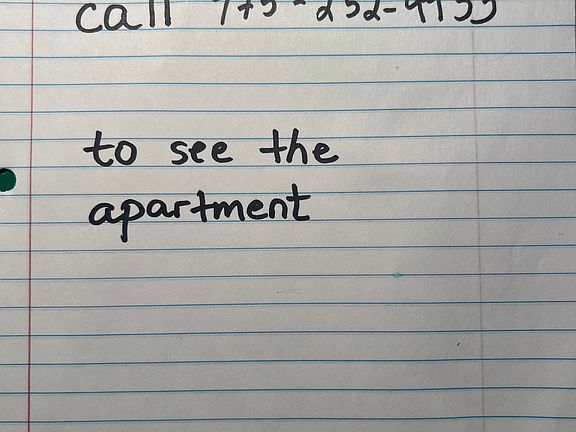 call
to see the
apartment